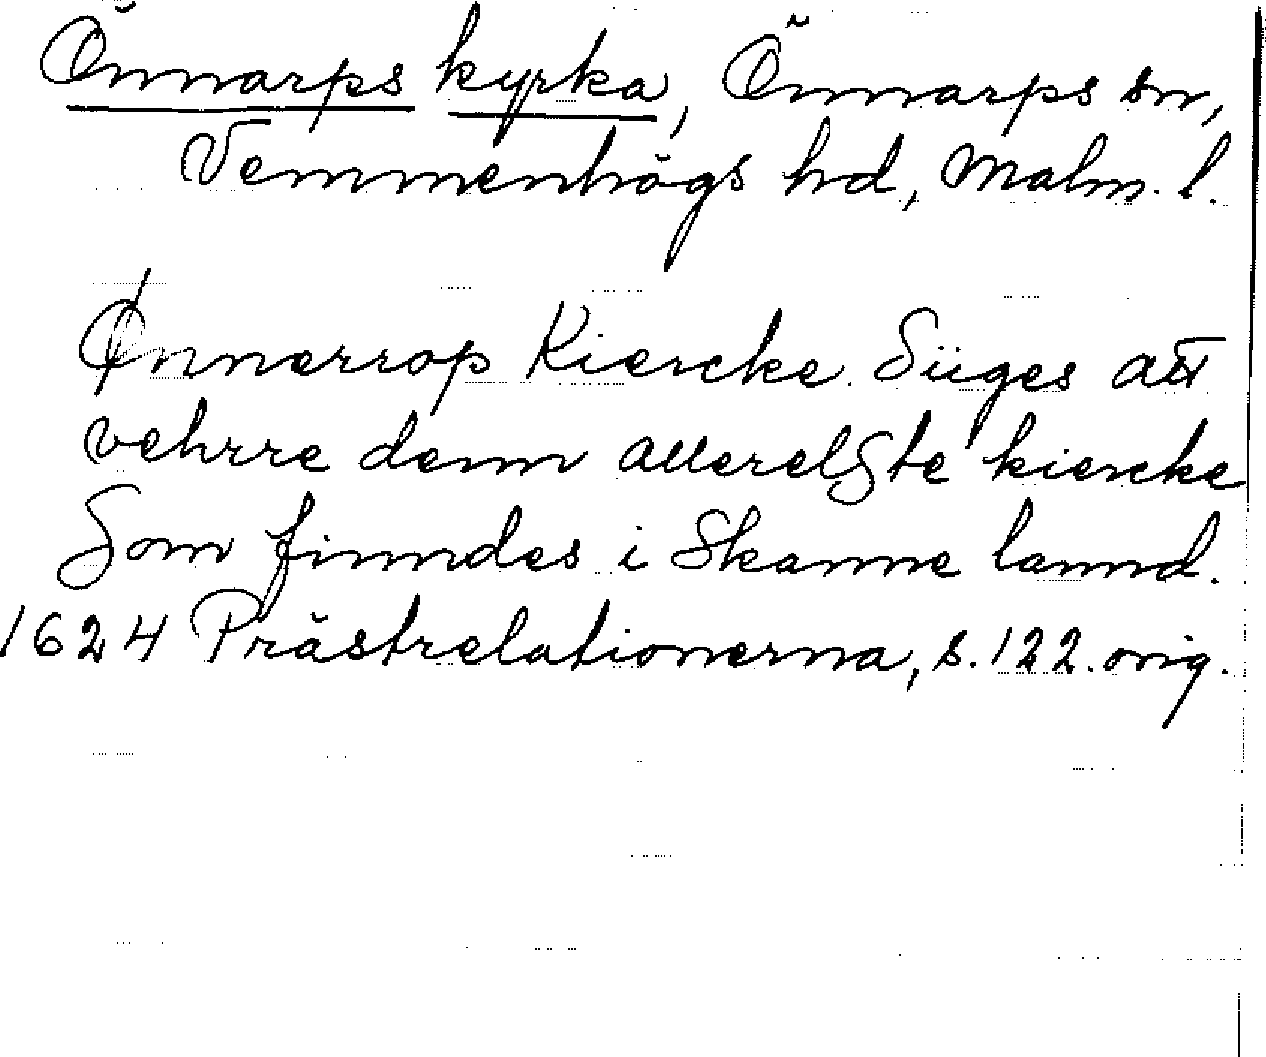 Önnarps kyrka, Önnarps sn,
Vemmenhögs hd, Malm. l.
Ønnerrop Kiercke. Siiges att
vehrre denn allerelßte kiercke
Som finndes i Skanne lannd.
1624 Prästrelationerna, s. 122. orig.